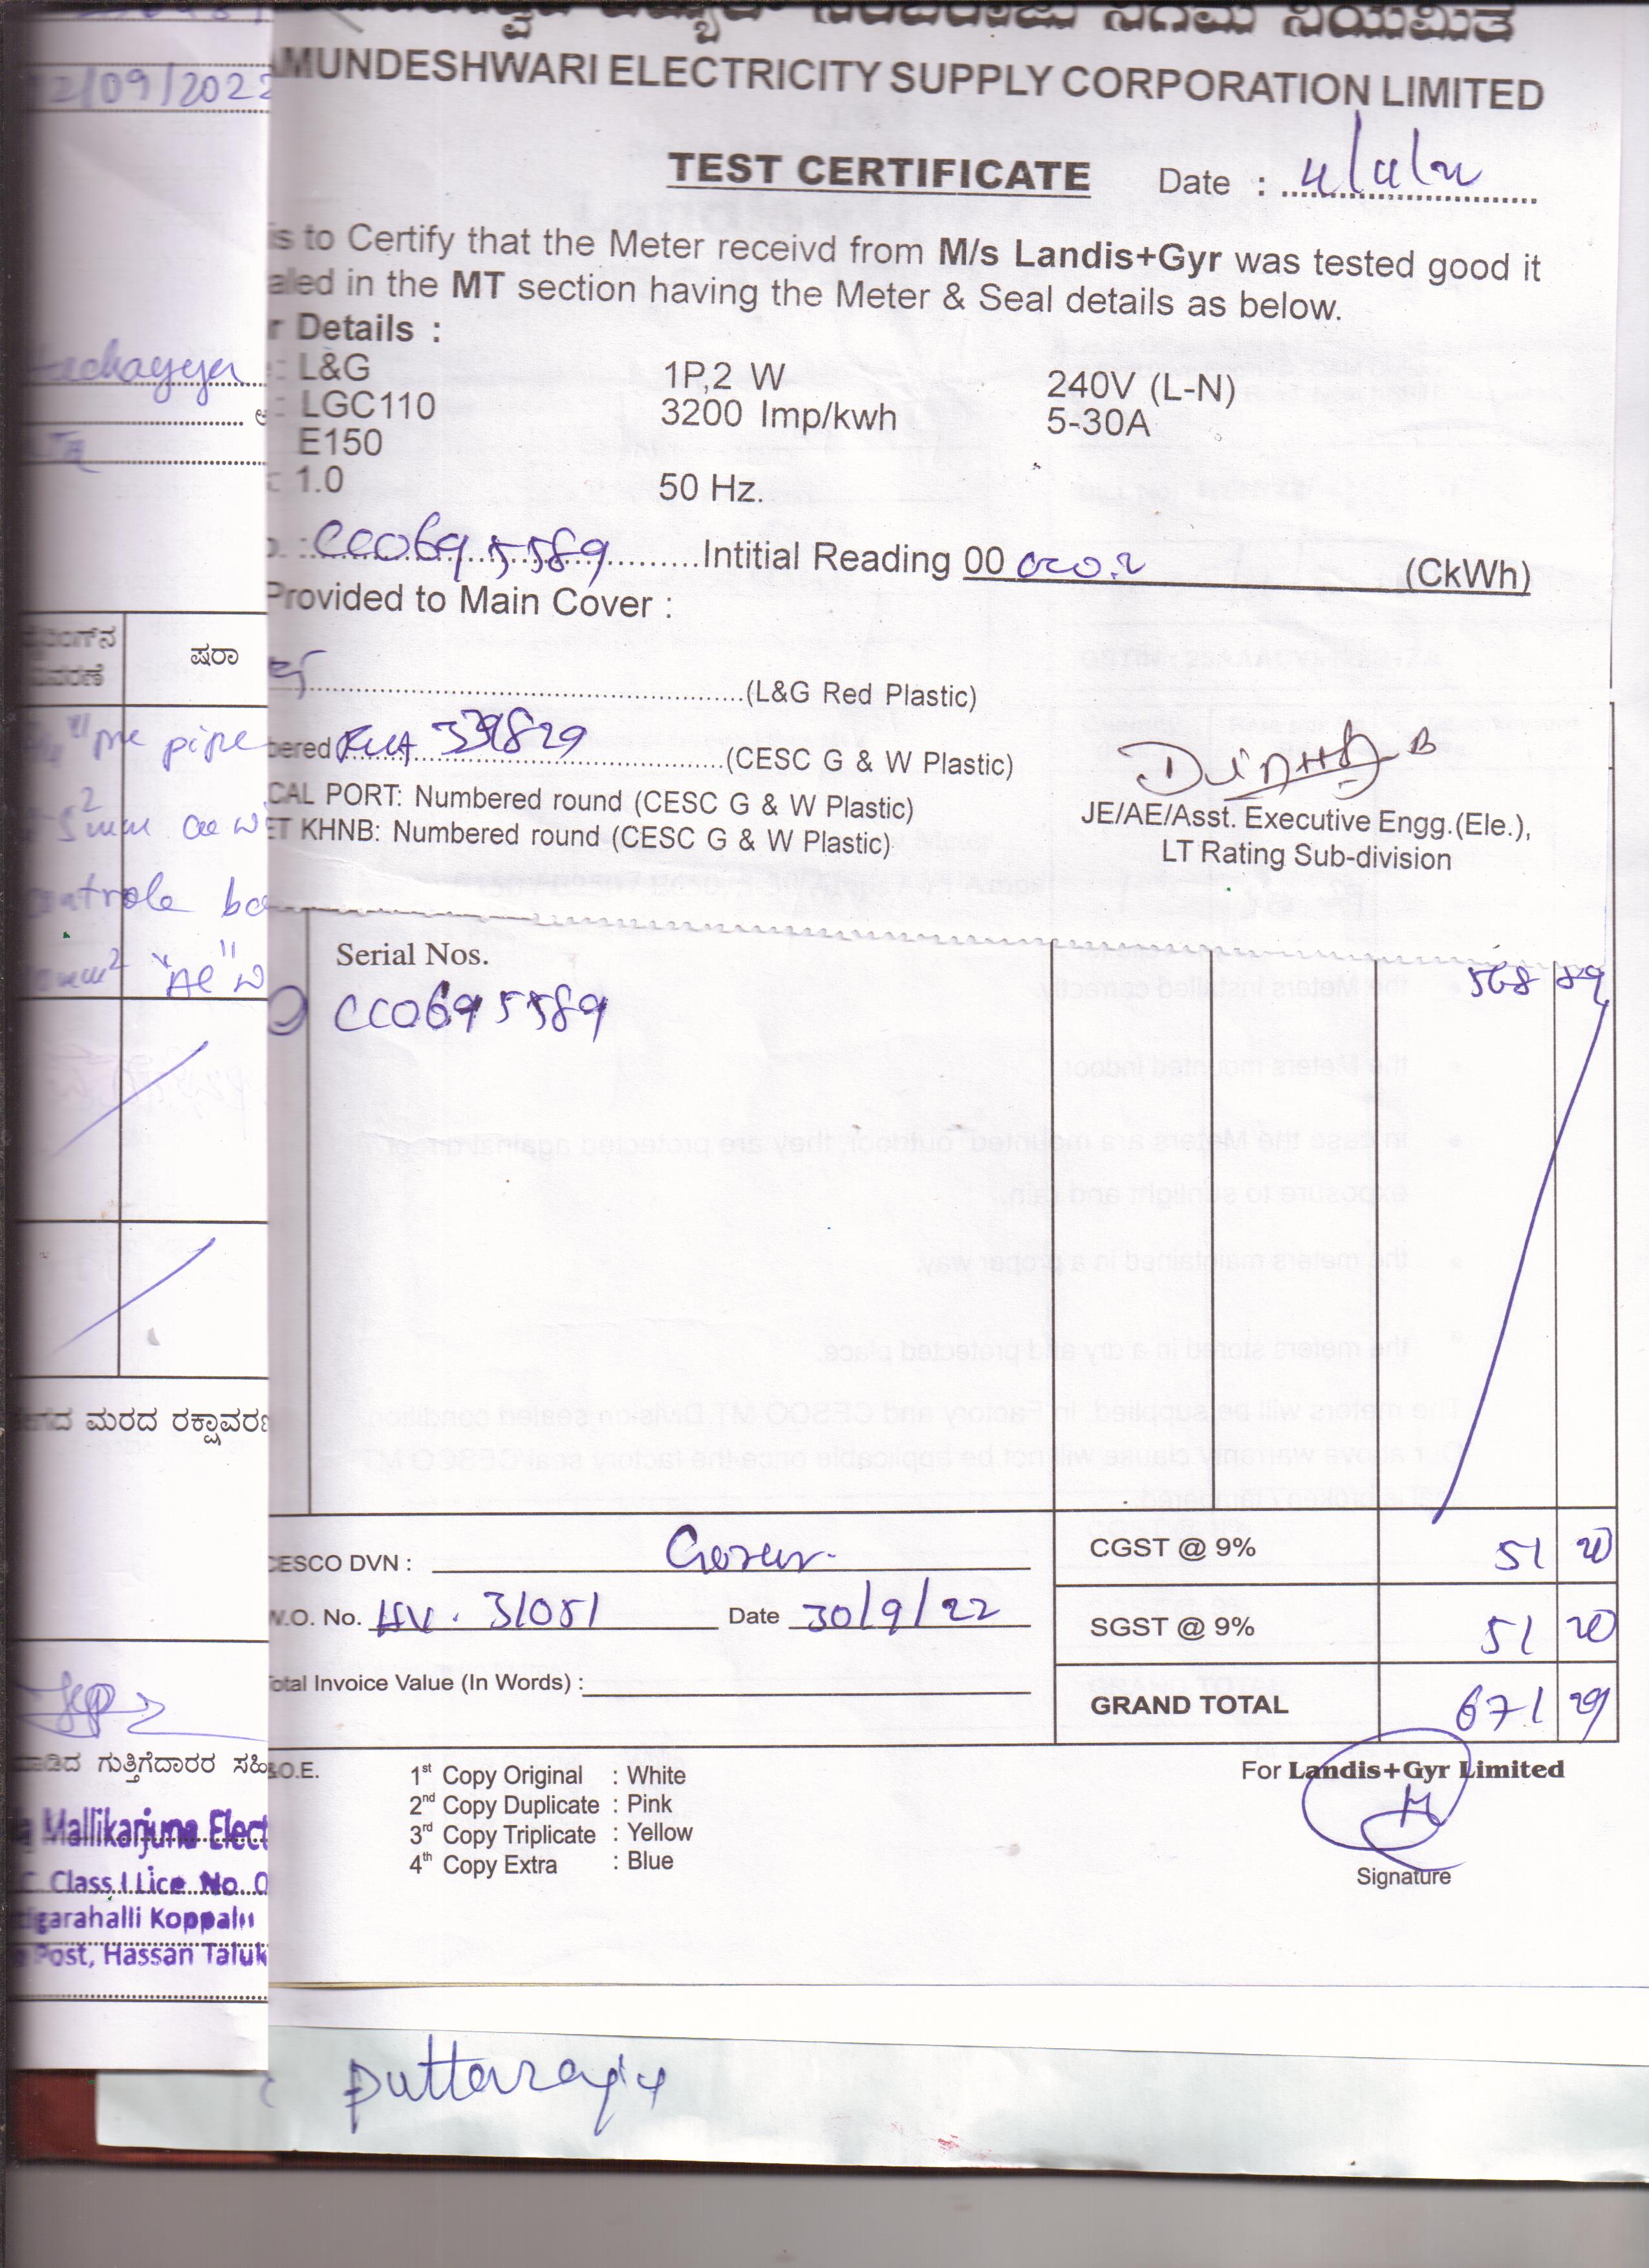 12/09/2022
ನಿಗಮ ನಿಯಮಿತ
MUNDESHWARI ELECTRICITY SUPPLY CORPORATION LIMITED
TEST CERTIFICATE Date :
is to Certify that the Meter receivd from M/s Landis+Gyr was tested good it
aled in the MT section having the Meter & Seal details as below.
r Details :
: L&G 1P,2 W 240V (L-N)
: LGC110 3200 Imp/kwh 5-30A
E150
: 1.0 50 Hz.
. : CC0695589 Intitial Reading 00 000.2 (CkWh)
Provided to Main Cover :
(L&G Red Plastic)
bered 339829 (CESC G & W Plastic)
CAL PORT: Numbered round (CESC G & W Plastic)
ET KHNB: Numbered round (CESC G & W Plastic)
JE/AE/Asst. Executive Engg.(Ele.),
LT Rating Sub-division
ಷರಾ
ವರಣೆ
pipe
Serial Nos.
CC0695589 568 89
"Al" W
ಮರದ ರಕ್ಷಾವರಣ
CESCO DVN : CGST @ 9% 51 20
W.O. No. HV. 31051 Date 30/9/22 SGST @ 9% 51 20
otal Invoice Value (In Words) : GRAND TOTAL 671 29
ಮಾಡಿದ ಗುತ್ತಿಗೆದಾರರ ಸಹಿ
&O.E.
1st Copy Original : White
2nd Copy Duplicate : Pink
3rd Copy Triplicate : Yellow
4th Copy Extra : Blue
For Landis+Gyr Limited
Signature
a Mallikarjuna Elect
C. Class I Lice No. 0
igarahalli Koppalu
Post, Hassan Taluk